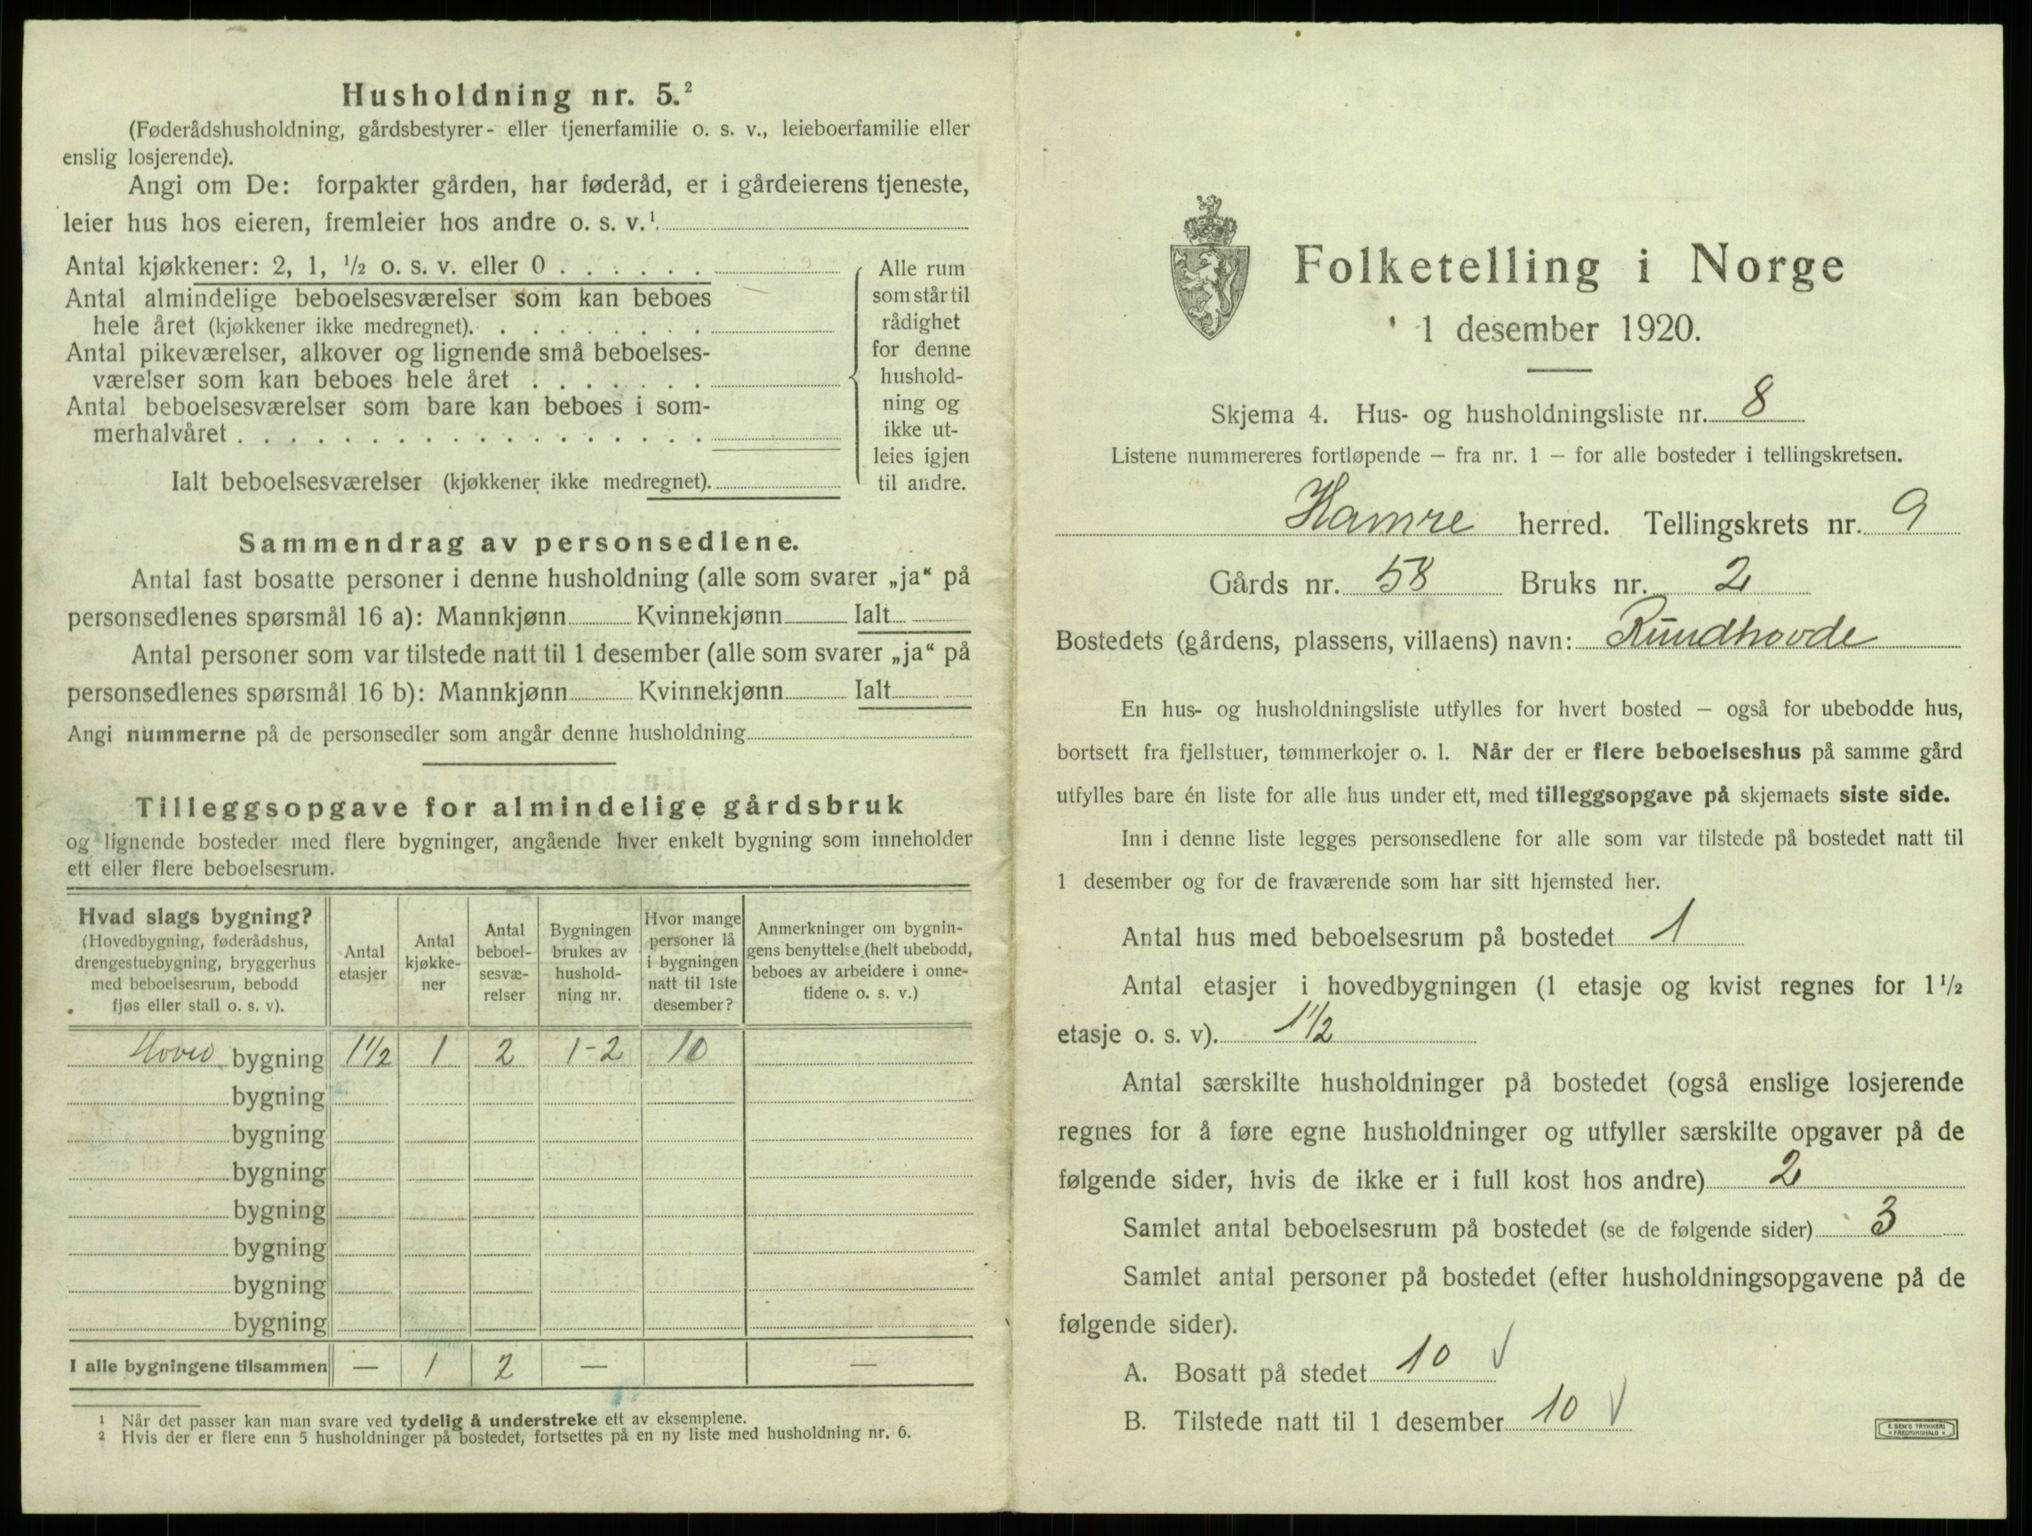 Husholdning nr. 5.²
(Føderådshusholdning, gårdsbestyrer- eller tjenerfamilie o. s. v., leieboerfamilie eller
enslig losjerende).
Angi om De: forpakter gården, har føderåd, er i gårdeierens tjeneste,
leier hus hos eieren, fremleier hos andre o. s. v.¹
Antal kjøkkener: 2, 1, ½ o. s. v. eller 0 . . . . . .
Antal almindelige beboelsesværelser som kan beboes
hele året (kjøkkener ikke medregnet). . . . . . . . .
Antal pikeværelser, alkover og lignende små beboelses-
værelser som kan beboes hele året . . . . . . .
Antal beboelsesværelser som bare kan beboes i som-
merhalvåret . . . . . . . . . . . . . . . . . .
Ialt beboelsesværelser (kjøkkener ikke medregnet).
Alle rum
som står til
rådighet
for denne
hushold-
ning og
ikke ut-
leies igjen
til andre.
Sammendrag av personsedlene.
Antal fast bosatte personer i denne husholdning (alle som svarer „ja“ på
personsedlenes spørsmål 16 a): Mannkjønn Kvinnekjønn Ialt
Antal personer som var tilstede natt til 1 desember (alle som svarer „ja“ på
personsedlenes spørsmål 16 b): Mannkjønn Kvinnekjønn Ialt
Angi nummerne på de personsedler som angår denne husholdning
Tilleggsopgave for almindelige gårdsbruk
og lignende bosteder med flere bygninger, angående hver enkelt bygning som inneholder
ett eller flere beboelsesrum.
Hvad slags bygning?
(Hovedbygning, føderådshus,
drengestuebygning, bryggerhus
med beboelsesrum, bebodd
fjøs eller stall o. s. v).
Antal
etasjer
Antal
kjøkke-
ner
Antal
beboel-
sesvæ-
relser
Bygningen
brukes av
hushold-
ning nr.
Hvor mange
personer lå
i bygningen
natt til 1ste
desember?
Anmerkninger om bygnin-
gens benyttelse (helt ubebodd,
beboes av arbeidere i onne-
tidene o. s. v.)
Hoved bygning 1½ 1 2 1-2 10
bygning
bygning
bygning
bygning
bygning
bygning
bygning
I alle bygningene tilsammen — 1 2 — —
¹ Når det passer kan man svare ved tydelig å understreke ett av eksemplene.
² Hvis der er flere enn 5 husholdninger på bostedet, fortsettes på en ny liste med husholdning nr. 6.
Folketelling i Norge
1 desember 1920.
Skjema 4. Hus- og husholdningsliste nr. 8
Listene nummereres fortløpende — fra nr. 1 — for alle bosteder i tellingskretsen.
Hamre herred. Tellingskrets nr. 9
Gårds nr. 58 Bruks nr. 2
Bostedets (gårdens, plassens, villaens) navn: Rundhovde
En hus- og husholdningsliste utfylles for hvert bosted — også for ubebodde hus,
bortsett fra fjellstuer, tømmerkojer o. l. Når der er flere beboelseshus på samme gård
utfylles bare én liste for alle hus under ett, med tilleggsopgave på skjemaets siste side.
Inn i denne liste legges personsedlene for alle som var tilstede på bostedet natt til
1 desember og for de fraværende som har sitt hjemsted her.
Antal hus med beboelsesrum på bostedet 1
Antal etasjer i hovedbygningen (1 etasje og kvist regnes for 1½
etasje o. s. v). 1½
Antal særskilte husholdninger på bostedet (også enslige losjerende
regnes for å føre egne husholdninger og utfyller særskilte opgaver på de
følgende sider, hvis de ikke er i full kost hos andre) 2
Samlet antal beboelsesrum på bostedet (se de følgende sider) 3
Samlet antal personer på bostedet (efter husholdningsopgavene på de
følgende sider).
A. Bosatt på stedet 10 √
B. Tilstede natt til 1 desember 10 √
E. SEM'S TRYKKERI
FREDRIKSHALD